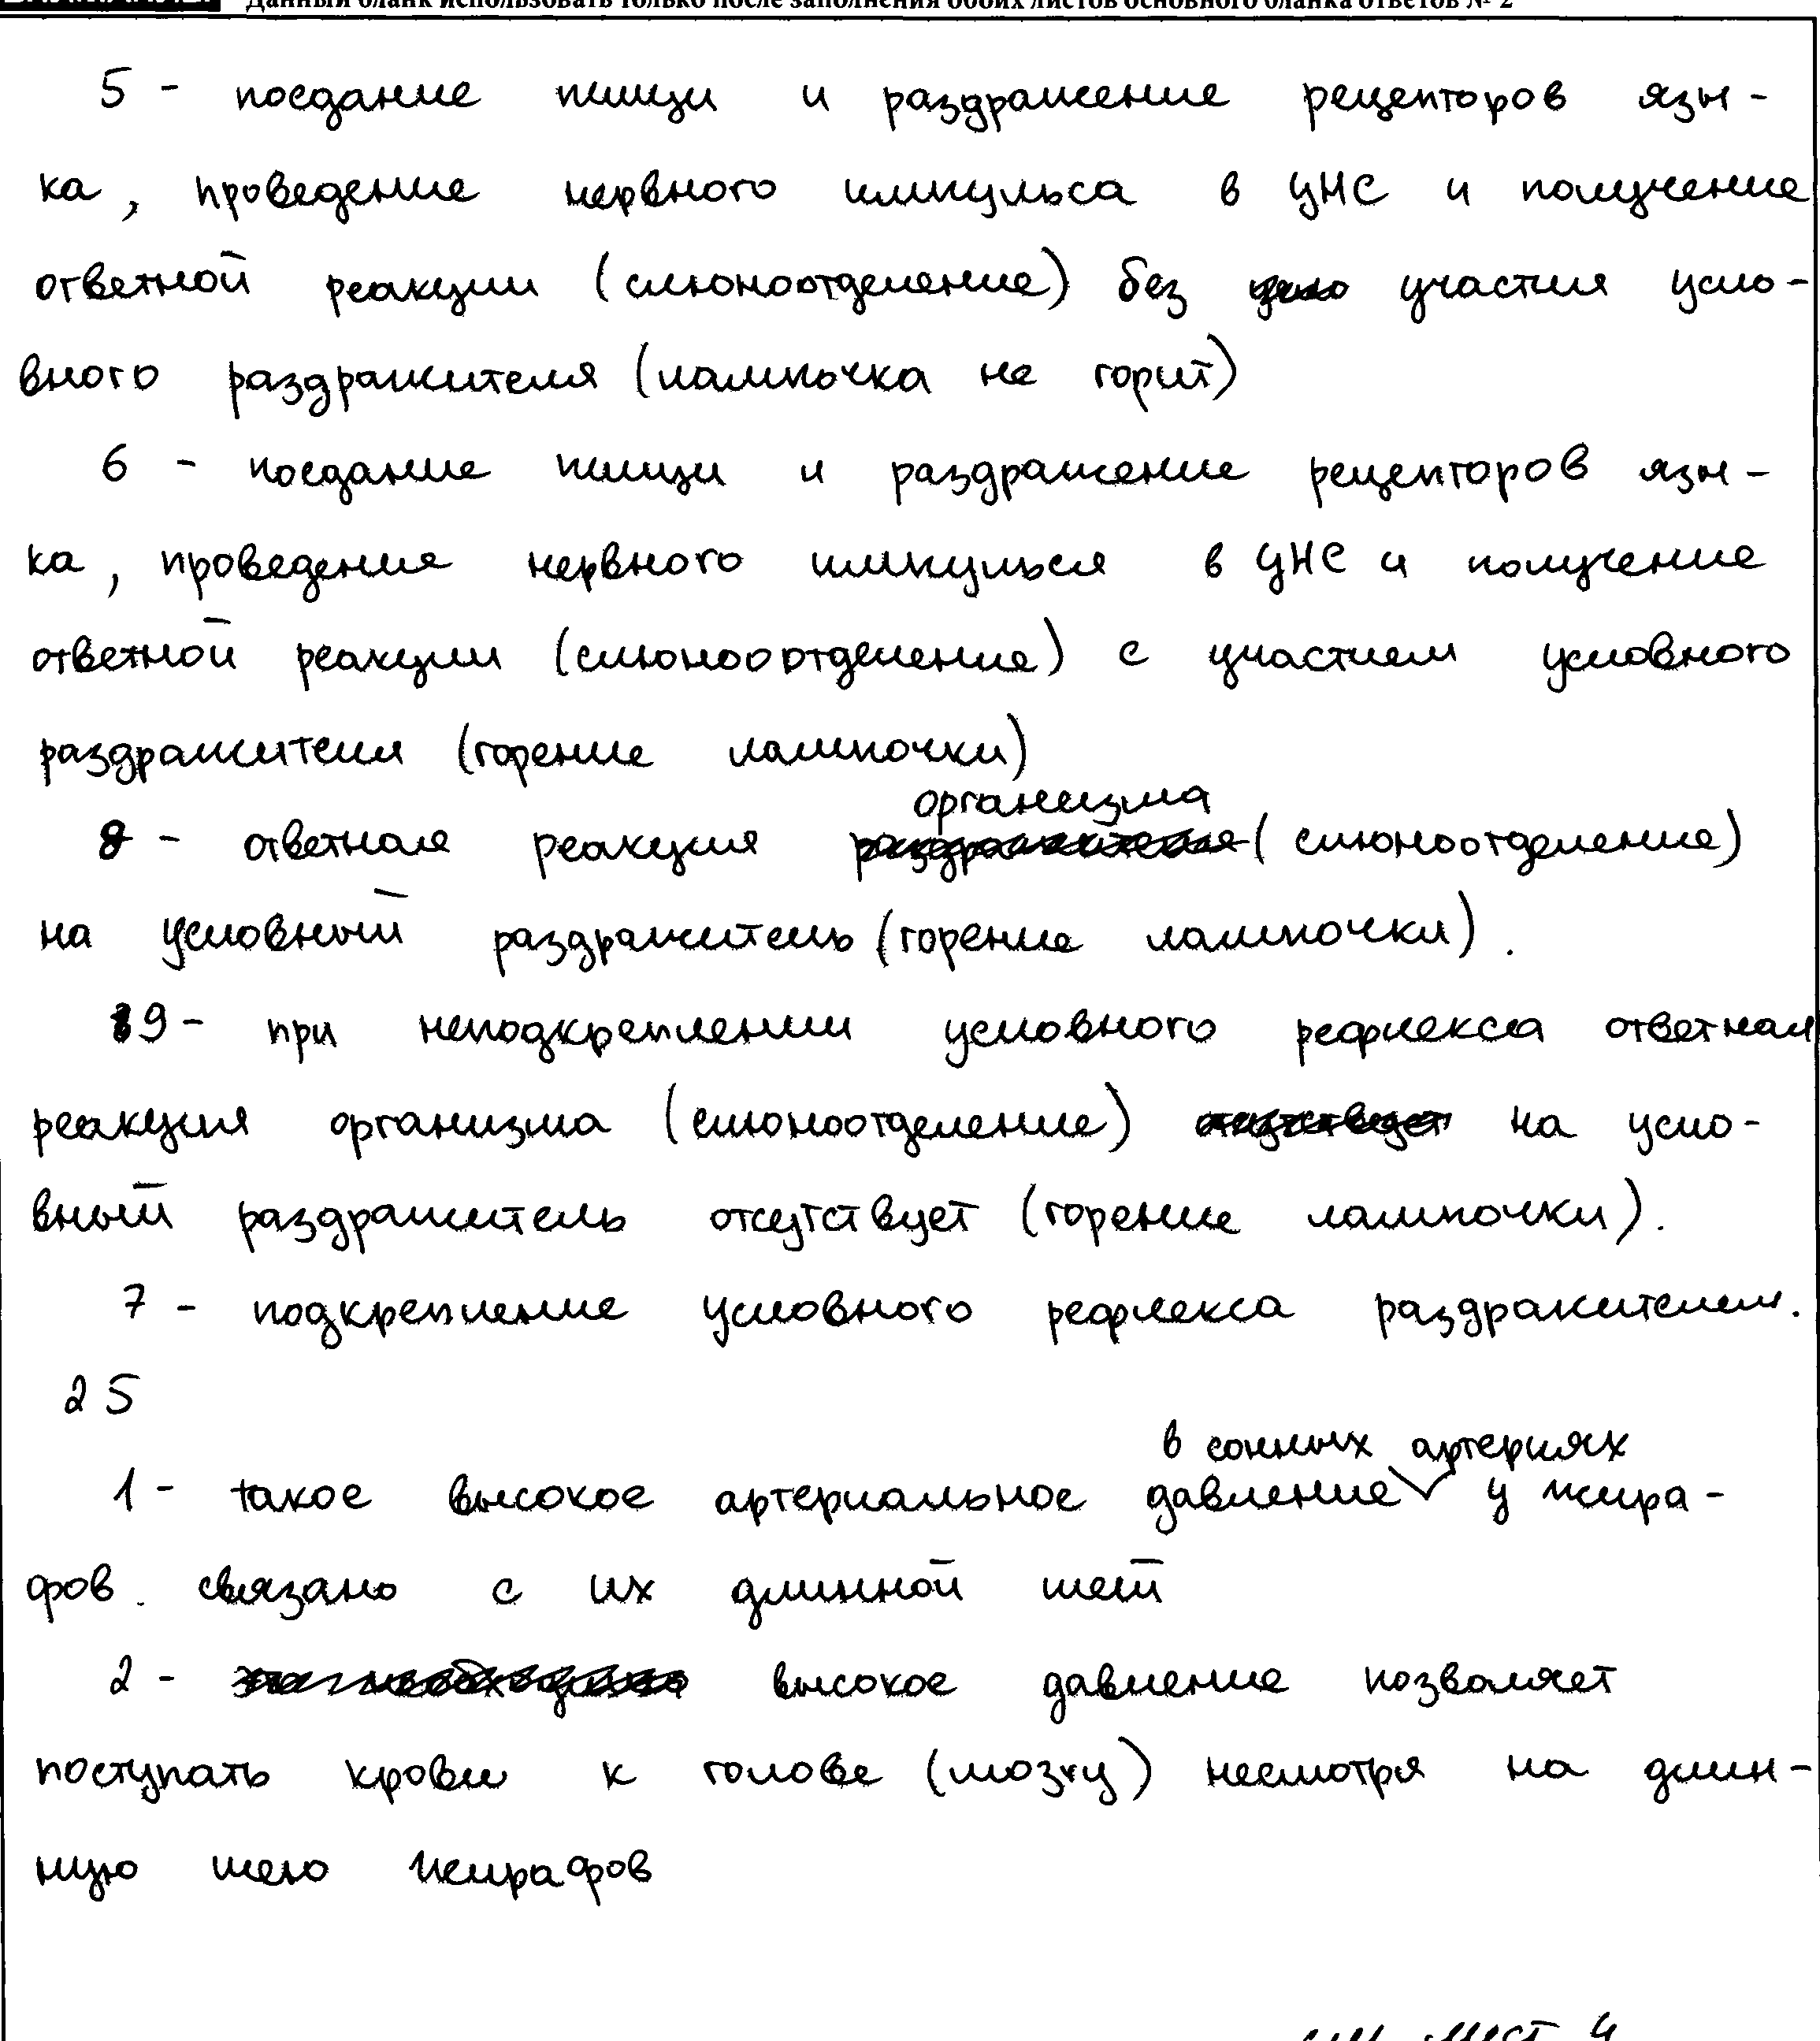 Данный бланк использовать только после заполнения обоих листов основного бланка ответов № 2
5 - поедание пищи и раздражение рецепторов язы-
ка, проведение нервного импульса в ЦНС и получение
ответной реакции (слюноотделение) без участия усло-
вного раздражителя (лампочка не горит)
6 - поедание пищи и раздражение рецепторов язы-
ка, проведение нервного импульса в ЦНС и получение
ответной реакции (слюноотделение) с участием условного
раздражителя (горение лампочки)
организма
8 - ответная реакция раздражителя (слюноотделение)
на условный раздражитель (горение лампочки).
9 - при неподкреплении условного рефлекса ответная
реакция организма (слюноотделение) отсутствует на усло-
вный раздражитель отсутствует (горение лампочки).
7 - подкрепление условного рефлекса раздражителем.
25
в сонных артериях
1 - такое высокое артериальное давление у жира-
фов. связано с их длинной шеей
2 - высокое давление позволяет
поступать крови к голове (мозгу) несмотря на длин-
ную шею жирафов
см лист 4